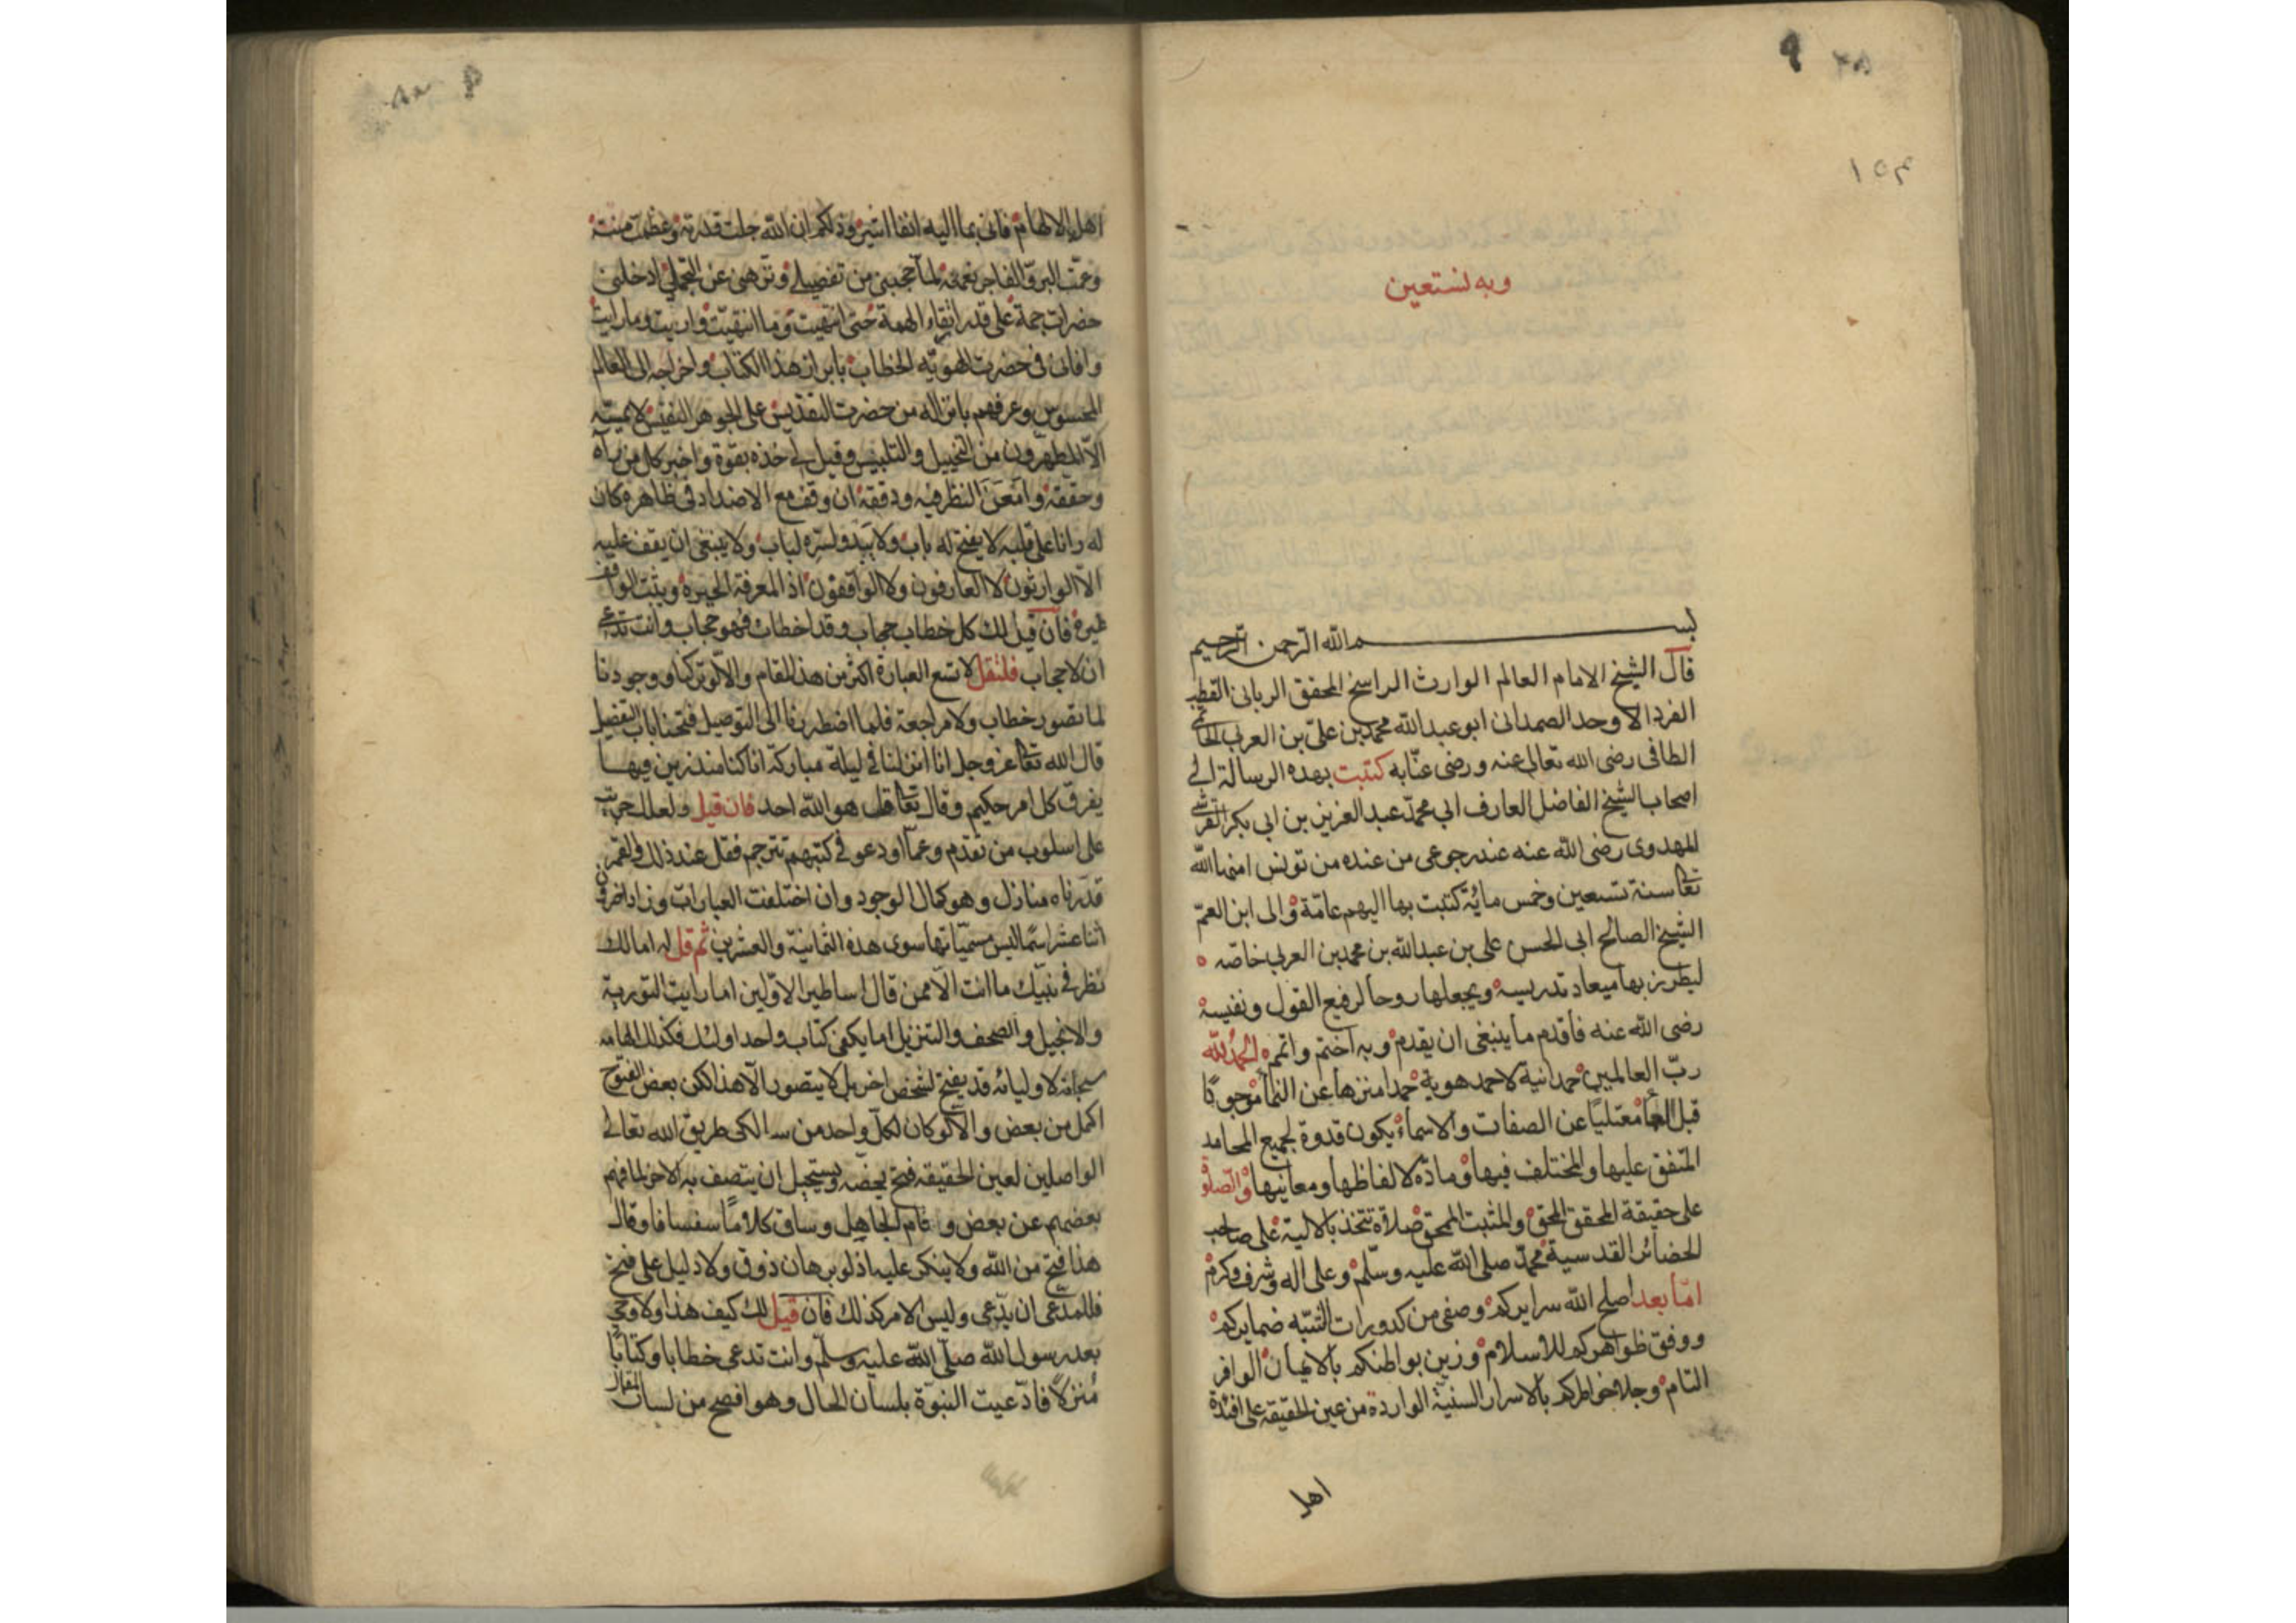 ٩
١٥٣
وبه نستعين
بسم الله الرحمن الرحيم
قال الشيخ الامام العالم الوارث الراسخ المحقق الربانى القطب
الفرد الاوحد الصمدانى ابو عبدالله محمد بن علىّ بن العربى الحاتمى
الطائى رضى الله تعالى عنه ورضى عنّا به كتبت بهذه الرسالة الى
اصحاب الشيخ الفاضل العارف ابي محمّد عبد العزيز بن ابي بكر القرشى
المهدوى رضى الله عنه عند رجوعى من عنده من تونس امنها الله
تعا سنة تسعين وخمس مائة كتبت بها اليهم عامّة والى ابن العمّ
الشيخ الصالح ابى الحسن على بن عبدالله بن محمد بن العربى خاصّه
ليطرز بها ميعاد تدريسه ويجعلها روحا لرفيع القول ونفيسه
رضى الله عنه فأقدم ما ينبغى ان يقدم وبه اختم واتمم الحمد لله
ربّ العالمين حمدانية لا حمد هوية حمدا منزها عن النما موجودًا
قبل العما معتليًا عن الصفات والاسماء يكون قدوة لجميع المحامد
المتفق عليها والمختلف فيها ومادّة لالفاظها ومعانيها والصلوة
على حقيقة المحقق المحق والمثبت الممحق صلاة تتخذ بالالية على صاحب
الحضائر القدسية محمّد صلى الله عليه وسلّم وعلى اله وشرف وكرم
امّا بعد اصلح الله سرايركم وصفى من كدورات الشبه ضمايركم
ووفق ظواهركم للاسلام وزين بواطنكم بالايمان الوافر
التام وجلا خواطركم بالاسرار السنية الواردة من عين الحقيقة على افئدة
اهل
اهل الالهام فانى بما اليه انفا اشير وذلكم ان الله جلت قدرته وعظمت منته
وعمّت البرّ والفاجر نعمته لما حجبنى من تفصيلى ونزهنى عن التجملى ادخلنى
حضرات جمة على قدر ارتقاء الهمة حتى انتهيت وما انتهيت واريت وما رايت
وافانى فى حضرت الهويّه الخطاب بابراز هذا الكتاب واخراجه الى العالم
المحسوس وعرفهم بانزاله من حضرت التقديس على الجوهر النفيس لا يمسّه
الّا المطهّرون من التخييل والتلبيس وقيل لى خذه بقوة واخبر كل من رآه
وحققه وامعن النظر فيه ودققه ان وقف مع الاضداد فى ظاهره كان
له رانا على قلبه لا يفتح له باب ولا يبدو لسرّه لباب ولا ينبغى ان يقف عليه
الّا الوارثون لا العارفون ولا الواقفون اذ المعرفة الحيرة ويثبت الواقف
غيره فان قيل لك كل خطاب حجاب وقد اخطات فهو حجاب وانت تدعى
ان لا حجاب فلتقل لا تسع العبارة اكثر من هذا المقام والّا لو تركنا ووجودنا
لما تصور خطاب ولا مراجعة فلما اضطررنا الى التوصيل فتحنا باب التفصيل
قال الله تعا عز وجل انا انزلناه فى ليلة مباركة انا كنا منذرين فيها
يفرق كل امر حكيم وقال تعا قل هو الله احد فان قيل ولعلك جريت
على اسلوب من تقدم وعمّا اودعو فى كتبهم تترجم فقل عند ذلك والقمر
قدرناه منازل وهو كمال الوجود وان اختلفت العبارات وزاد اخرون
اثنا عشر اسما ليس مسمّياتها سوى هذه الثمانية والعشرين ثم قل له امالك
نظر فى نبيّك ما انت الّا ممن قال اساطير الاوّلين اما رايت التورية
والانجيل والصحف والتنزيل اما يكفى كتاب واحد اولئك فكذلك الهامه
سبحانه لاوليائه قد يفتح لشخص اخر بل لا يتصور الّا هذا لكن بعض الفتوح
اكمل من بعض والّا لو كان لكلّ واحد من سالكى طريق الله تعالى
الواصلين لعين الحقيقه فتح يخصّه ويستحيل ان يتصف به الاخر لما فهم
بعضهم عن بعض ولقام الجاهل وساق كلامًا سفسافا وقال
هذا فتح من الله ولا ينكر عليه اذ لو برهان ذوق ولا دليل على فتح
فللمدّعى ان يدّعى وليس الامر كذلك فان قيل لك كيف هذا ولا وحى
بعد رسول الله صلّى الله عليه وسلّم وانت تدعى خطابا وكتابًا
مُنزلًا فادّعيت النبوّة بلسان الحال وهو افصح من لسان المقال